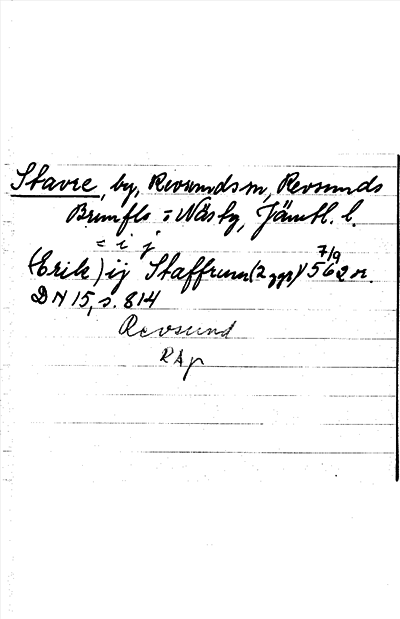 Stavre, by, Revsunds sn, Revsunds
Brunflo o Näs tg, Jämtl. l.
= i j
(Erik) ij Staffrum (2 ggr) 7/9 1562 or.
DN 15, s. 814
Revsund
RAp